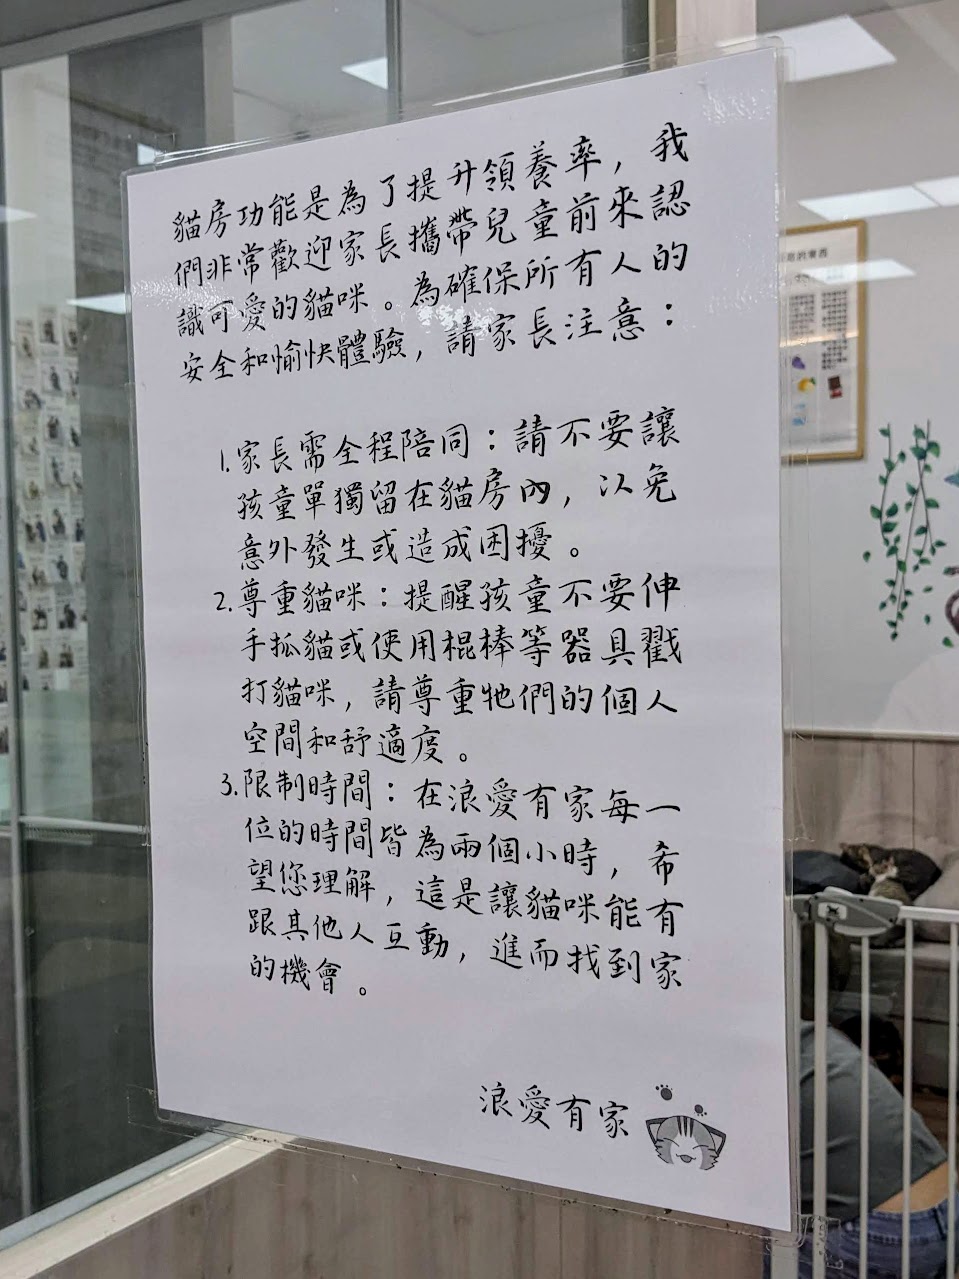 貓房功能是為了提升領養率，我
們非常歡迎家長攜帶兒童前來認
識可愛的貓咪。為確保所有人的
安全和愉快體驗，請家長注意：
1.家長需全程陪同：請不要讓
孩童單獨留在貓房內，以免
意外發生或造成困擾。
2.尊重貓咪：提醒孩童不要伸
手抓貓或使用棍棒等器具戳
打貓咪，請尊重牠們的個人
空間和舒適度。
3.限制時間：在浪愛有家每一
位的時間皆為兩個小時，希
望您理解，這是讓貓咪能有
跟其他人互動，進而找到家
的機會。
浪愛有家